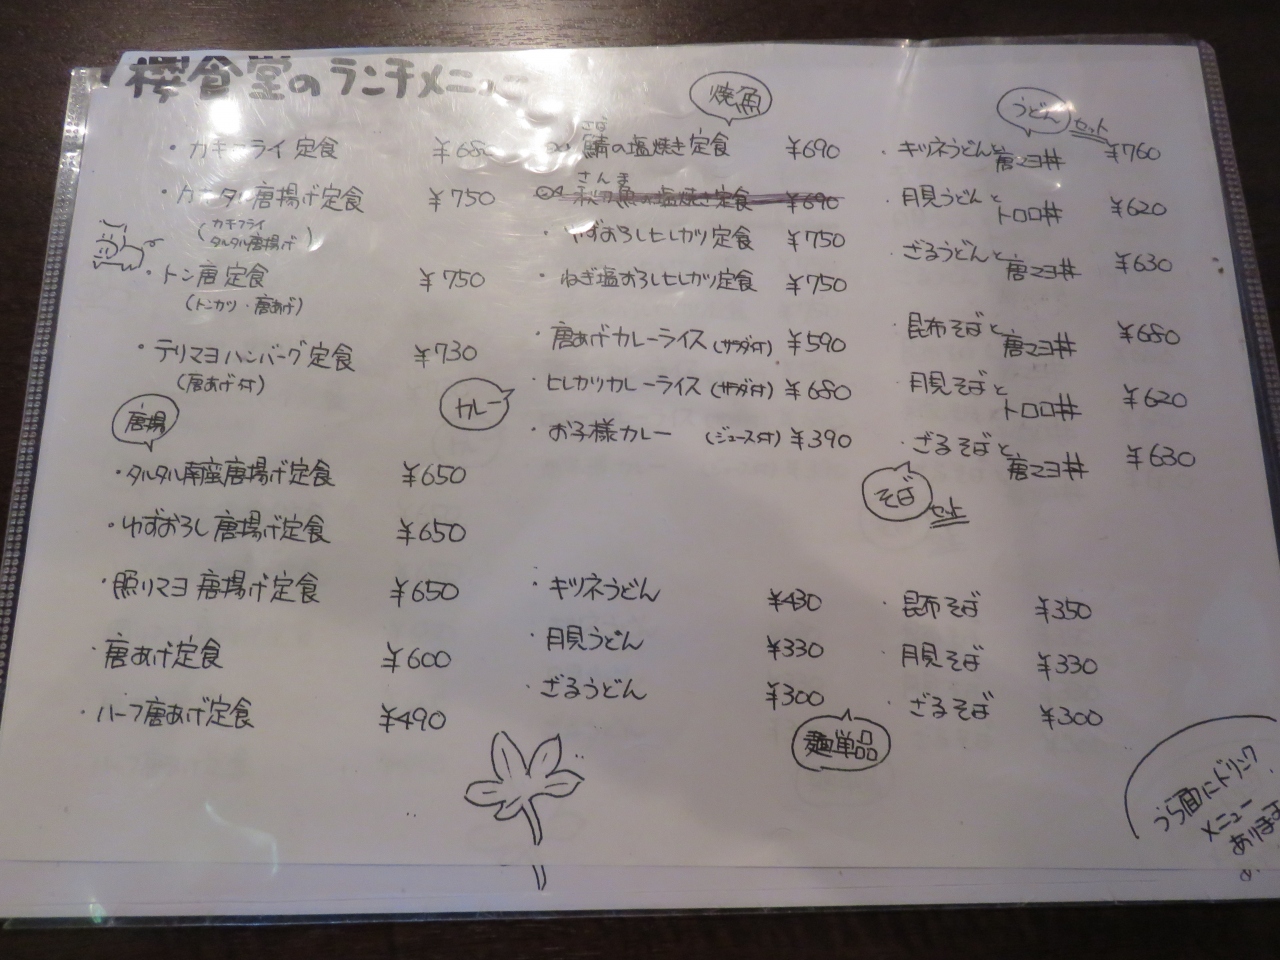 桜食堂のランチメニュー
・カキフライ定食 ¥680
・カキタル唐揚げ定食 ¥750
(カキフライ
タルタル唐揚げ)
・トン唐定食 ¥750
(トンカツ・唐あげ)
・テリマヨハンバーグ定食 ¥730
(唐あげ付)
唐揚
・タルタル南蛮唐揚げ定食 ¥650
・ゆずおろし唐揚げ定食 ¥650
・照リマヨ唐揚げ定食 ¥650
・唐あげ定食 ¥600
・ハーフ唐あげ定食 ¥490
焼魚
さば
鯖の塩焼き定食 ¥690
さんま
秋刀魚の塩焼き定食 ¥690
・ゆずおろしヒレカツ定食 ¥750
・ねぎ塩おろしヒレカツ定食 ¥750
カレー
・唐あげカレーライス(サラダ付) ¥590
・ヒレカツカレーライス(サラダ付) ¥680
・お子様カレー (ジュース付) ¥390
うどんセット
・キツネうどんと唐マヨ丼 ¥760
・月見うどんとトロロ丼 ¥620
・ざるうどんと唐マヨ丼 ¥630
・昆布そばと唐マヨ丼 ¥680
・月見そばとトロロ丼 ¥620
・ざるそばと唐マヨ丼 ¥630
そばセット
・キツネうどん ¥430
・月見うどん ¥330
・ざるうどん ¥300
・昆布そば ¥350
・月見そば ¥330
・ざるそば ¥300
麺単品
うら面にドリンク
メニュー
あります